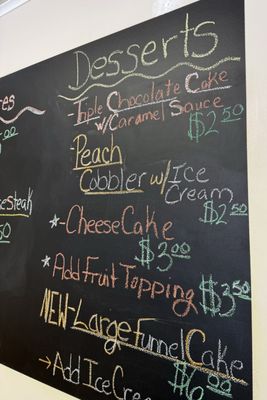 Desserts
-Triple Chocolate Cake
w/Caramel Sauce
$2.50
-Peach
Cobbler w/ Ice
Cream
$2.50
*-CheeseCake
$3.00
*-Add Fruit Topping
$3.50
NEW-Large Funnel Cake
$6.00
→Add Ice Cream